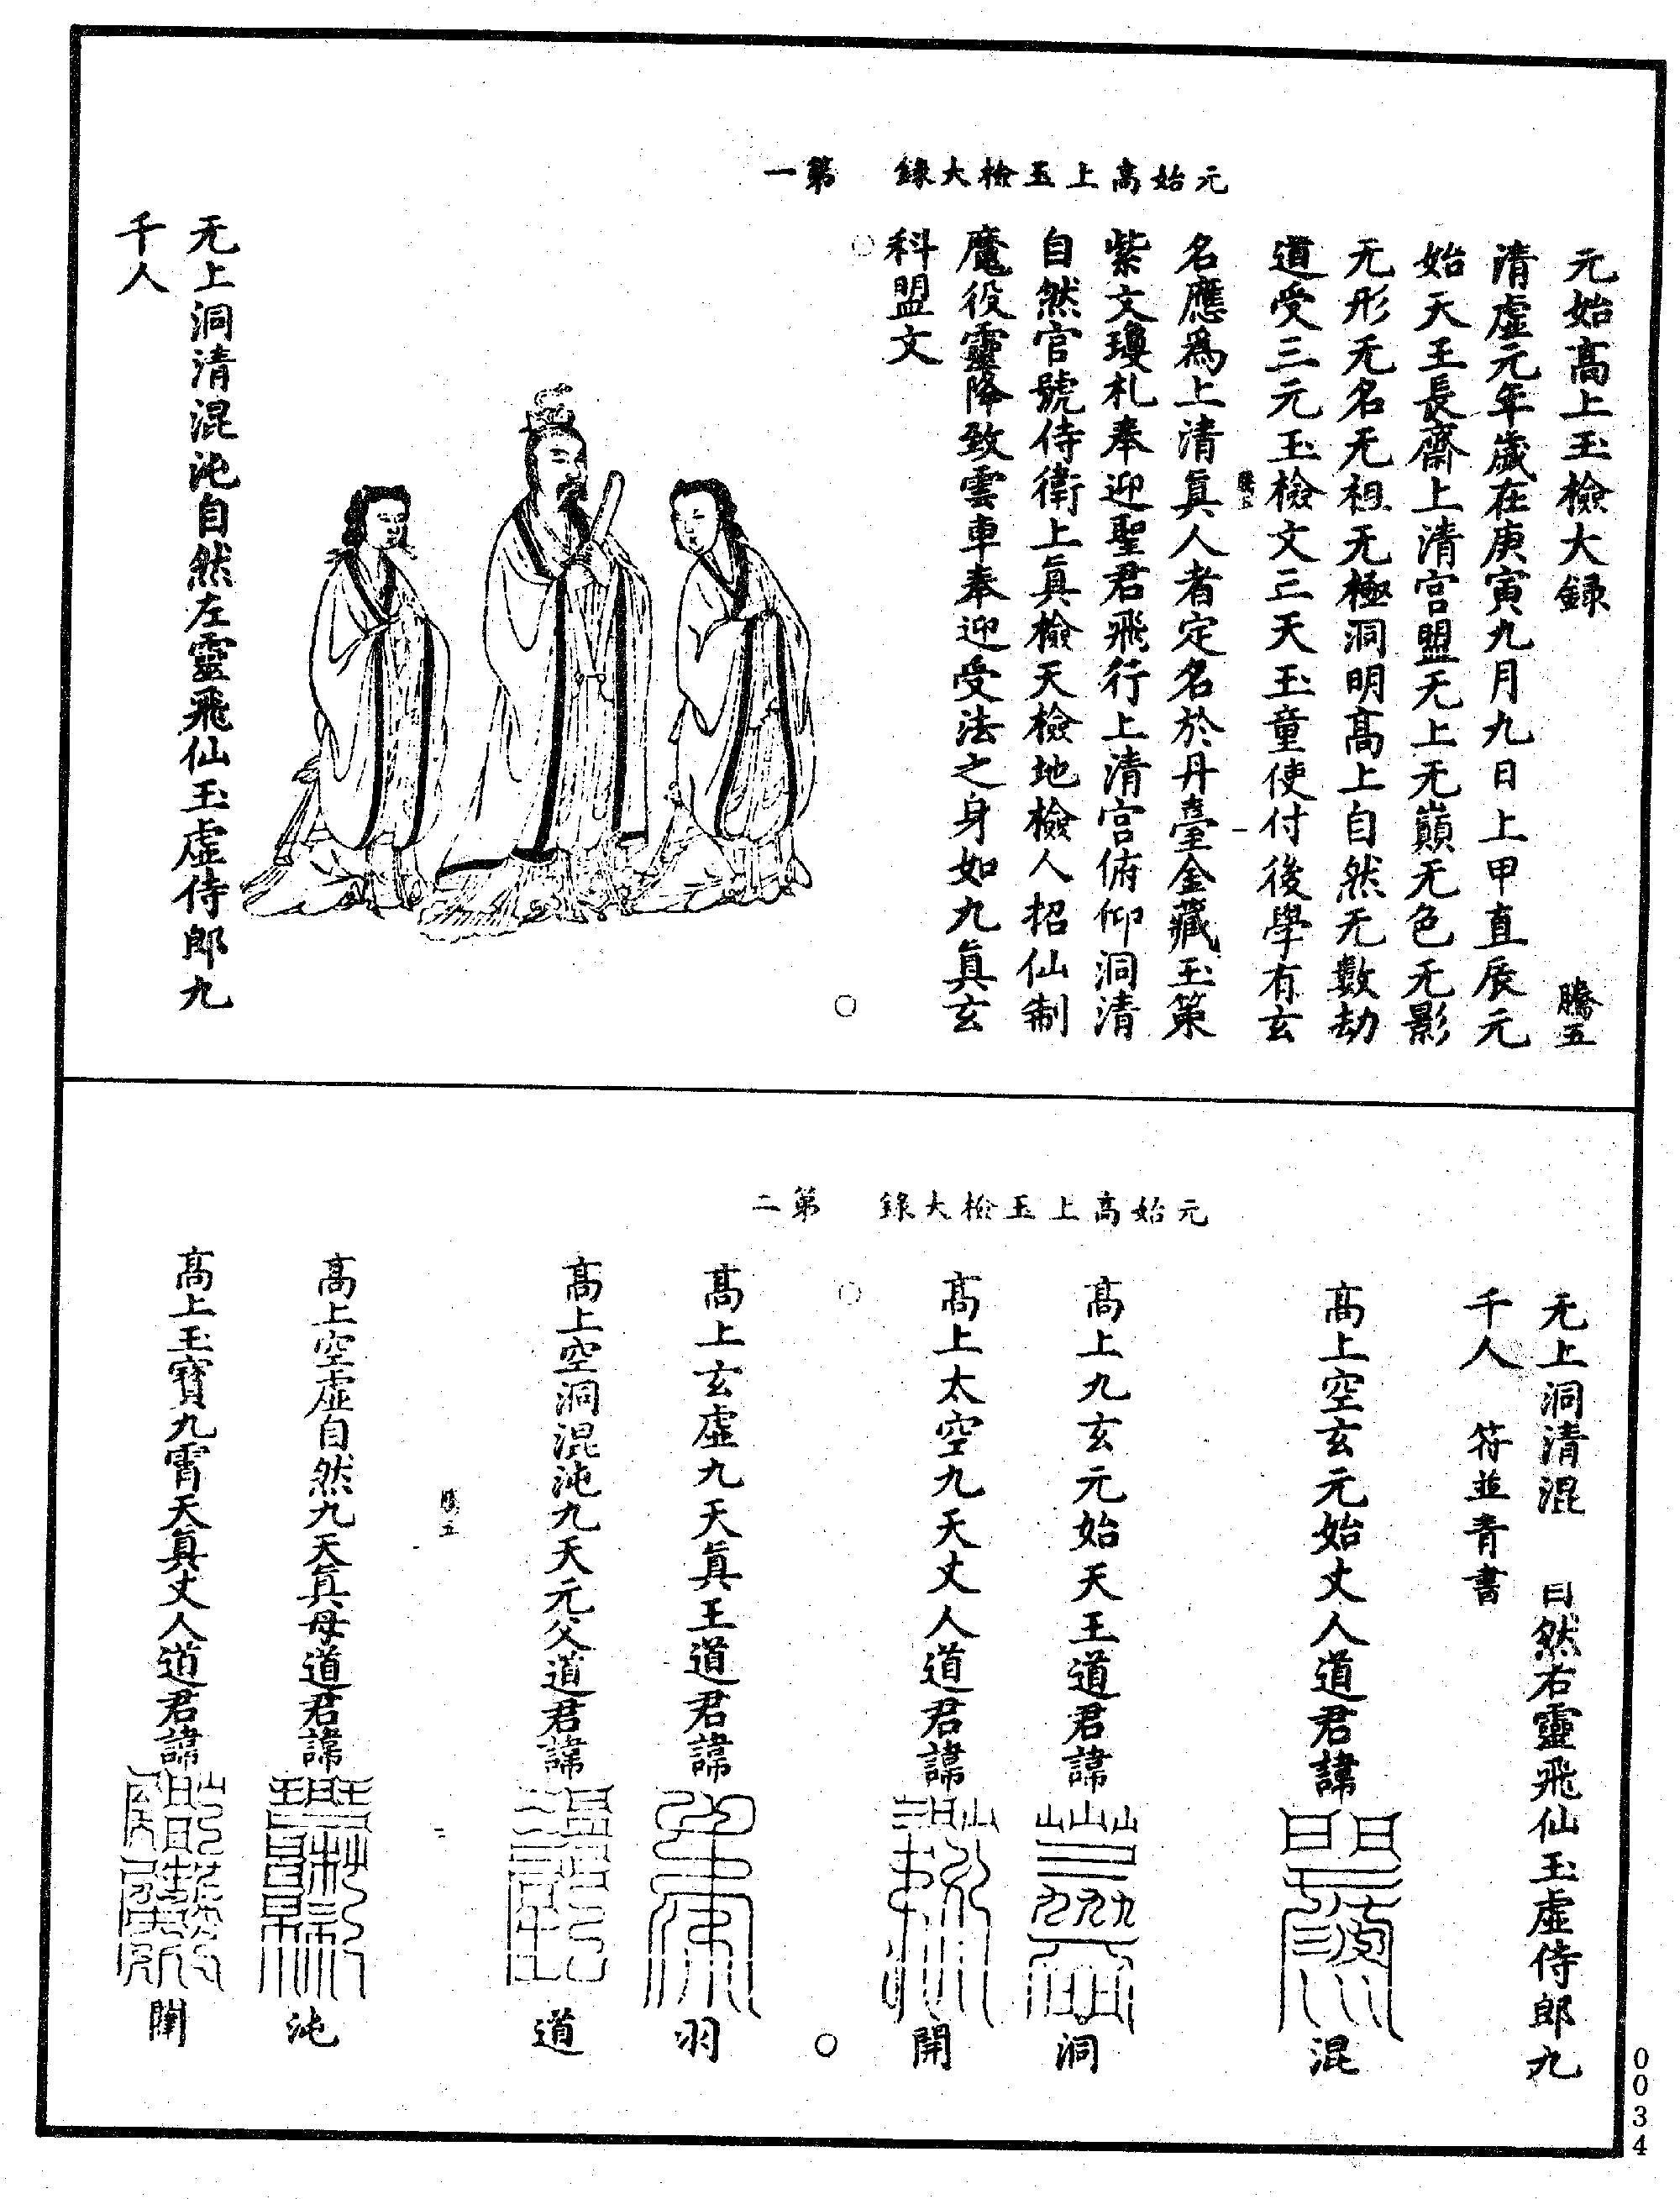 元始高上玉檢大錄　第一
元始高上玉檢大録　騰五
清虛元年歲在庚寅九月九日上甲直辰元
始天王長齋上清宮盟无上无巔无色无影
无形无名无祖无極洞明高上自然无數劫
道受三元玉檢文三天玉童使付後學有玄
騰五　一
名應爲上清真人者定名於丹臺金藏玉策
紫文瓊札奉迎聖君飛行上清宮俯仰洞清
自然官號侍衛上真檢天檢地檢人招仙制
魔役靈降致雲車奉迎受法之身如九真玄
科盟文
无上洞清混沌自然左靈飛仙玉虛侍郎九
千人
元始高上玉檢大錄　第二
无上洞清混　自然右靈飛仙玉虛侍郎九
千人　符並青書
高上空玄元始丈人道君諱　混
高上九玄元始天王道君諱　洞
高上太空九天丈人道君諱　開
高上玄虛九天真王道君諱　羽
高上空洞混沌九天元父道君諱　道
騰五　二
高上空虛自然九天真母道君諱　沌
高上玉寶九霄天真丈人道君諱
0034